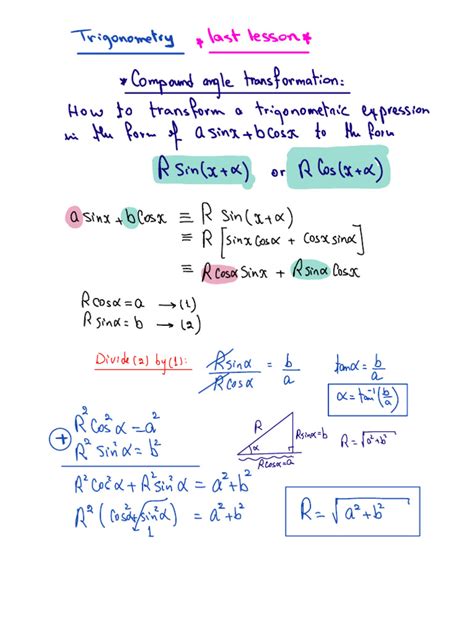 Trigonometry * last lesson *
* Compound angle transformation:
How to transform a trigonometric expression
in the form of a sinx + b cosx to the form
R Sin(x+α) or R Cos(x+α)
a sinx + b Cosx ≡ R Sin(x+α)
≡ R [sinx Cosα + Cosx sinα]
≡ R Cosα Sinx + R sinα Cosx
R Cosα = a → (1)
R sinα = b → (2)
Divide (2) by (1): R sinα / R Cosα = b/a tanα = b/a
α = tan⁻¹(b/a)
R² Cos²α = a²
+ R² Sin²α = b²
R α R sinα = b R = √a²+b²
R Cosα = a
R² Cos²α + R² Sin²α = a² + b²
R² (Cos²α + sin²α) = a² + b² R = √a² + b²
1